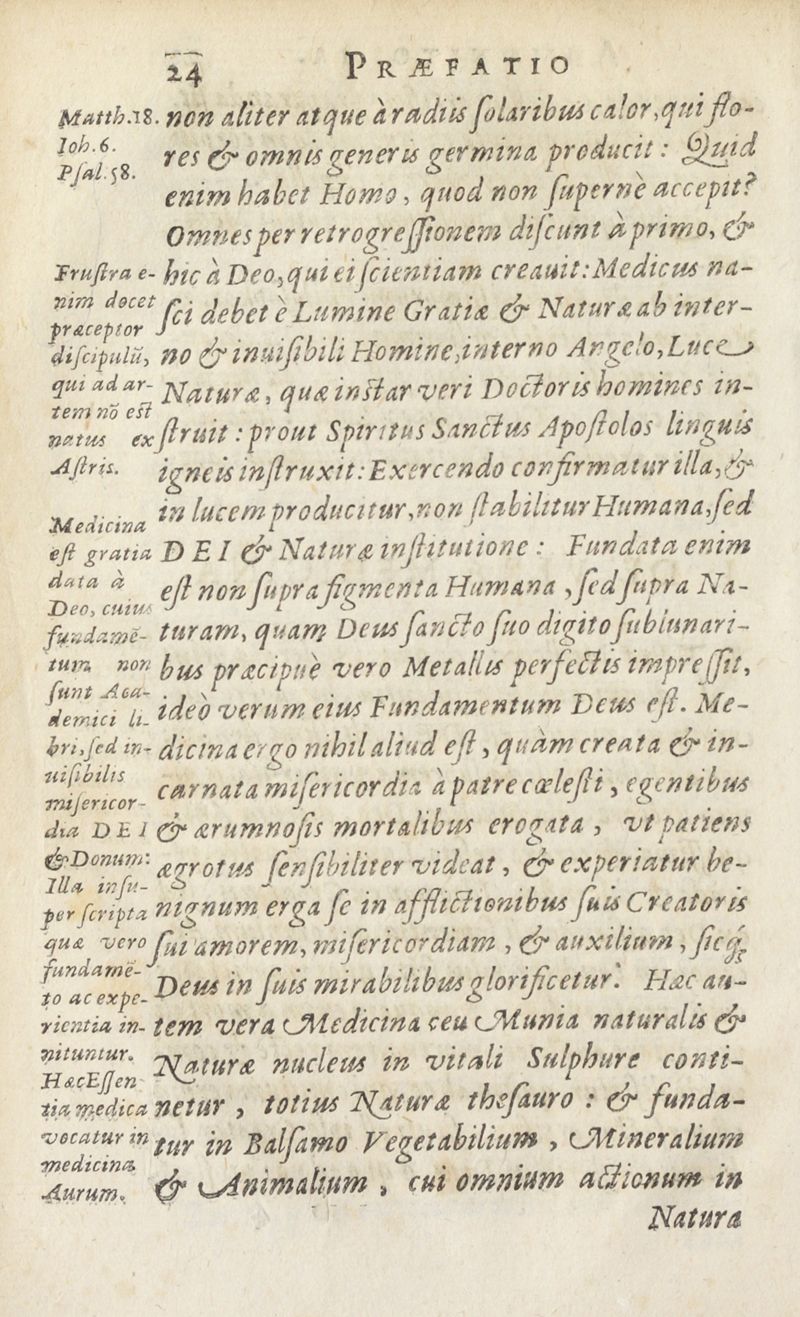 24 PRÆFATIO
Matth.18.
Ioh.6.
Psal.58.
non aliter atque à radiis ſolaribus calor, qui flo-
res & omnis generis germina producit: Quid
enim habet Homo, quod non ſupernè accepit?
Omnes per retrogreſſionem diſcunt à primo, &
hic à Deo, qui ei ſcientiam creauit: Medicus na-
ſci debet è Lumine Gratiæ & Naturæ ab inter-
no & inuiſibili Homine, interno Angelo, Luce
Naturæ, quæ instar veri Doctoris homines in-
ſtruit: prout Spiritus Sanctus Apoſtolos linguis
igneis inſtruxit: Exercendo confirmatur illa, &
in lucem producitur, non ſtabilitur Humana, ſed
DEI & Naturæ inſtitutione: Fundata enim
eſt non ſupra figmenta Humana, ſed ſupra Na-
turam, quam Deus ſancto ſuo digito ſublunari-
bus præcipuè vero Metallis perfectis impreſſit,
ideò verum eius Fundamentum Deus eſt. Me-
dicina ergo nihil aliud eſt, quàm creata & in-
carnata miſericordia à patre cœleſti, egentibus
& ærumnoſis mortalibus erogata, vt patiens
ægrotus ſenſibiliter videat, & experiatur be-
nignum erga ſe in afflictionibus ſuis Creatoris
ſui amorem, miſericordiam, & auxilium, ſicq́;
Deus in ſuis mirabilibus glorificetur. Hæc au-
tem vera Medicina ceu Munia naturalis &
Naturæ nucleus in vitali Sulphure conti-
netur, totius Naturæ theſauro: & funda-
tur in Balſamo Vegetabilium, Mineralium
& Animalium, cui omnium actionum in
Natura
Fruſtra e-
nim docet
præceptor
diſcipulũ,
qui ad ar-
tem nō est
natus ex
Aſtris.
Medicina
eſt gratia
data à
Deo, cuius
fundamē-
tum non
ſunt Aca-
demici li-
bri, ſed in-
uiſibilis
miſericor-
dia DEI
& Donum:
Illa inſu-
per ſcripta
quæ vero
fundamē-
to ac expe-
rientia in-
nituntur.
Hæc Eſſen
tia medica
vocatur in
medicina
Aurum.